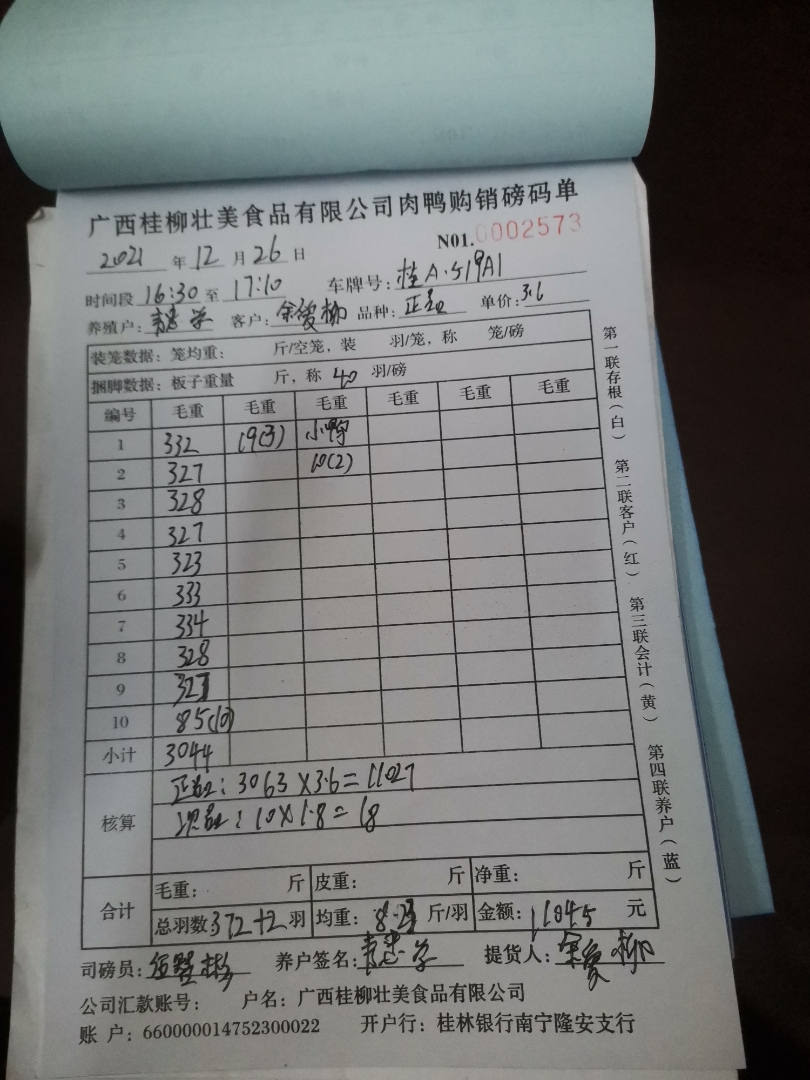 广西桂柳壮美食品有限公司肉鸭购销磅码单
2021 年 12 月 26 日 N01.0002573
时间段 16:30 至 17:10 车牌号: 桂A·519A1
养殖户: 客户: 余爱柳 品种: 正品 单价: 3.6
装笼数据: 笼均重: 斤/空笼, 装 羽/笼, 称 笼/磅
捆脚数据: 板子重量 斤, 称 40 羽/磅
编号 毛重 毛重 毛重 毛重 毛重 毛重
1 332 19(3) 小鸭
2 327 10(2)
3 328
4 327
5 323
6 333
7 334
8 328
9 327
10 85(10)
小计 3044
核算
正品: 3063×3.6=11027
次品: 10×1.8=18
合计
毛重: 斤 皮重: 斤 净重: 斤
总羽数 372+2 羽 均重: 8.23 斤/羽 金额: 11045 元
司磅员: 养户签名: 提货人: 余爱柳
公司汇款账号: 户名: 广西桂柳壮美食品有限公司
账 户: 660000014752300022 开户行: 桂林银行南宁隆安支行
第一联存根(白) 第二联客户(红) 第三联会计(黄) 第四联养户(蓝)